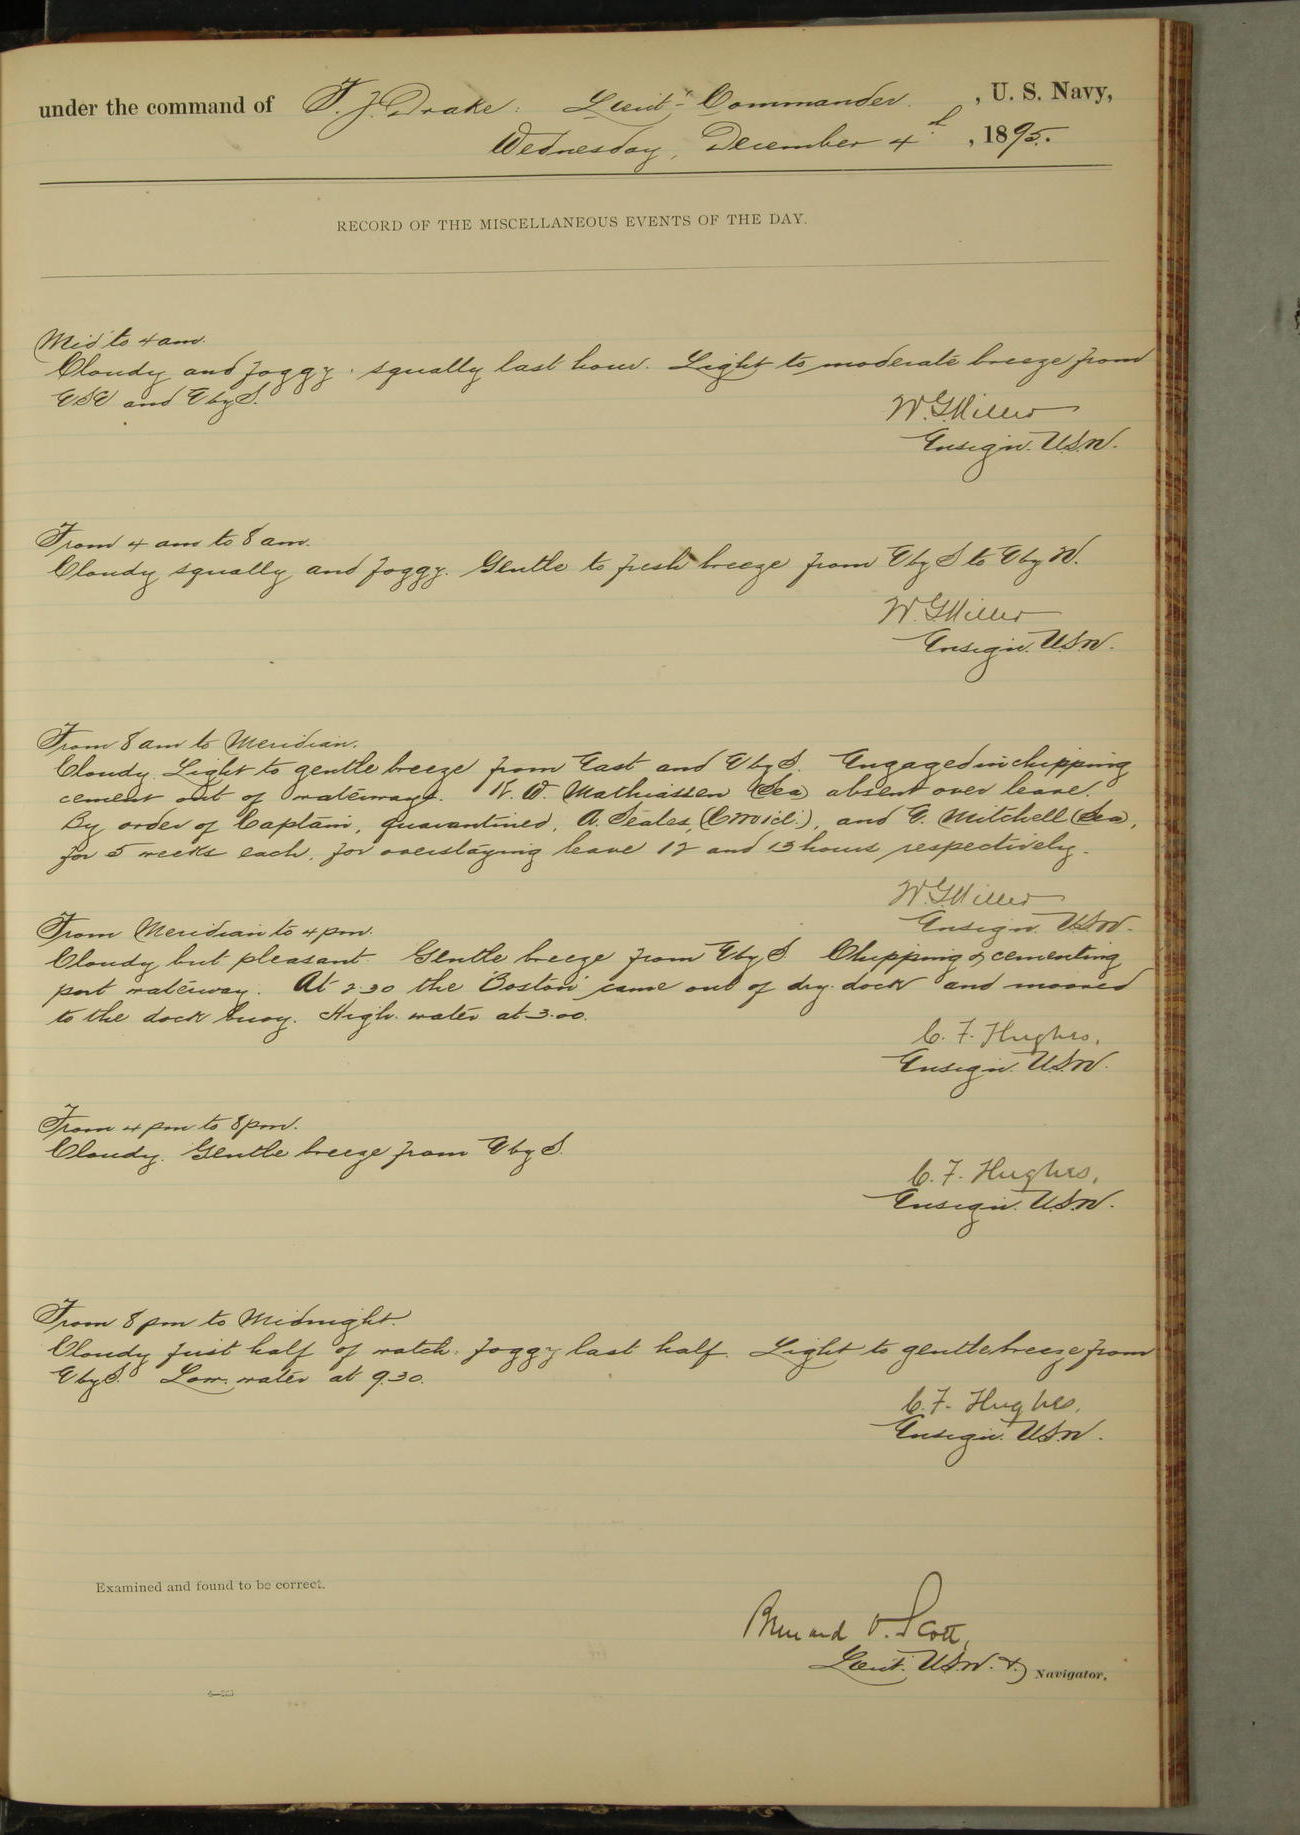 under the command of F. J. Drake. Lieut-Commander. , U. S. Navy,
Wednesday, December 4th , 1895.
RECORD OF THE MISCELLANEOUS EVENTS OF THE DAY.
Mid to 4 am.
Cloudy and foggy. squally last hour. Light to moderate breeze from
ESE and E by S.
W. G. Miller
Ensign. U.S.N.
From 4 am to 8 am.
Cloudy squally and foggy. Gentle to fresh breeze from E by S to E by N.
W. G. Miller
Ensign. U.S.N.
From 8 am to Meridian.
Cloudy. Light to gentle breeze from East and E by S. Engaged in chipping
cement out of waterways. W. Mathiassen (Sea) absent over leave.
By order of Captain, quarantined, A. Seates, and G. Mitchell (Sea),
for 5 weeks each, for overstaying leave 12 and 13 hours respectively.
W. G. Miller
Ensign. U.S.N.
From Meridian to 4 pm.
Cloudy but pleasant. Gentle breeze from E by S. Chipping & cementing
port waterway. At 2.30 the "Boston" came out of dry-dock and moored
to the dock buoy. High water at 3.00.
C. F. Hughes,
Ensign. U.S.N.
From 4 pm to 8 pm.
Cloudy. Gentle breeze from E by S.
C. F. Hughes,
Ensign. U.S.N.
From 8 pm to Midnight.
Cloudy first half of watch. foggy last half. Light to gentle breeze from
E by S. Low water at 9.30.
C. F. Hughes,
Ensign. U.S.N.
Examined and found to be correct.
Bernard O. Scott,
Lieut. U.S.N. & Navigator.